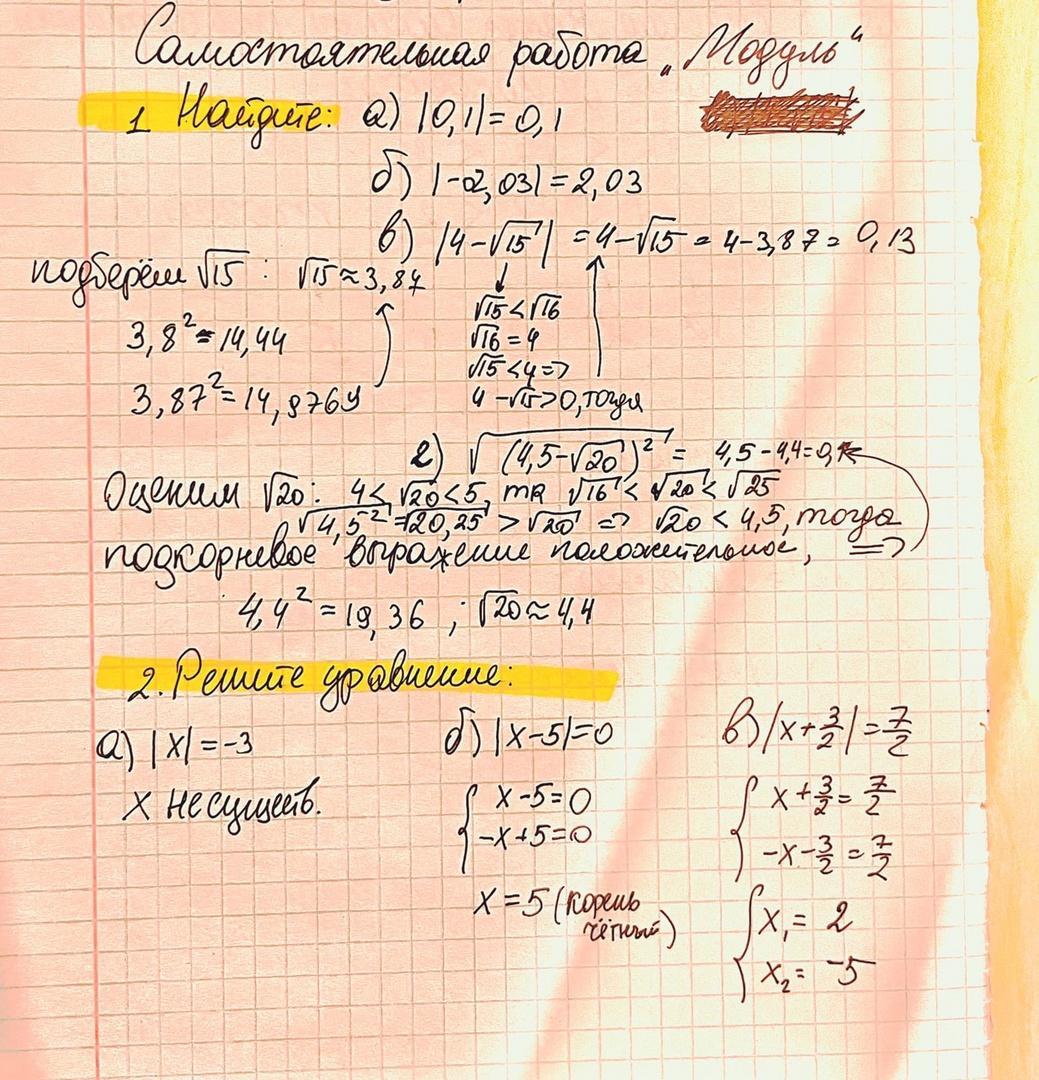 Самостоятельная работа „Модуль“
1 Найдите: а) |0,1| = 0,1
б) |-2,03| = 2,03
в) |4-√15| = 4-√15 = 4-3,87 = 0,13
подберём √15 : √15 ≈ 3,87
√15 < √16
3,8² = 14,44
√16 = 4
√15 < 4 =>
3,87² = 14,9769
4 - √15 > 0, тогда
г) √(4,5-√20)² = 4,5 - 4,4 = 0,1
Оценим √20: 4 < √20 < 5, тк √16 < √20 < √25
√4,5² = √20,25 > √20 => √20 < 4,5, тогда
подкорневое выражение положительное, =>
4,4² = 19,36 ; √20 ≈ 4,4
2. Решите уравнение:
а) |x| = -3
б) |x-5| = 0
в) |x+3/2| = 7/2
x не существ.
{ x-5=0
-x+5=0
x = 5 (корень чётный)
{ x+3/2 = 7/2
-x-3/2 = 7/2
{ x₁ = 2
x₂ = -5